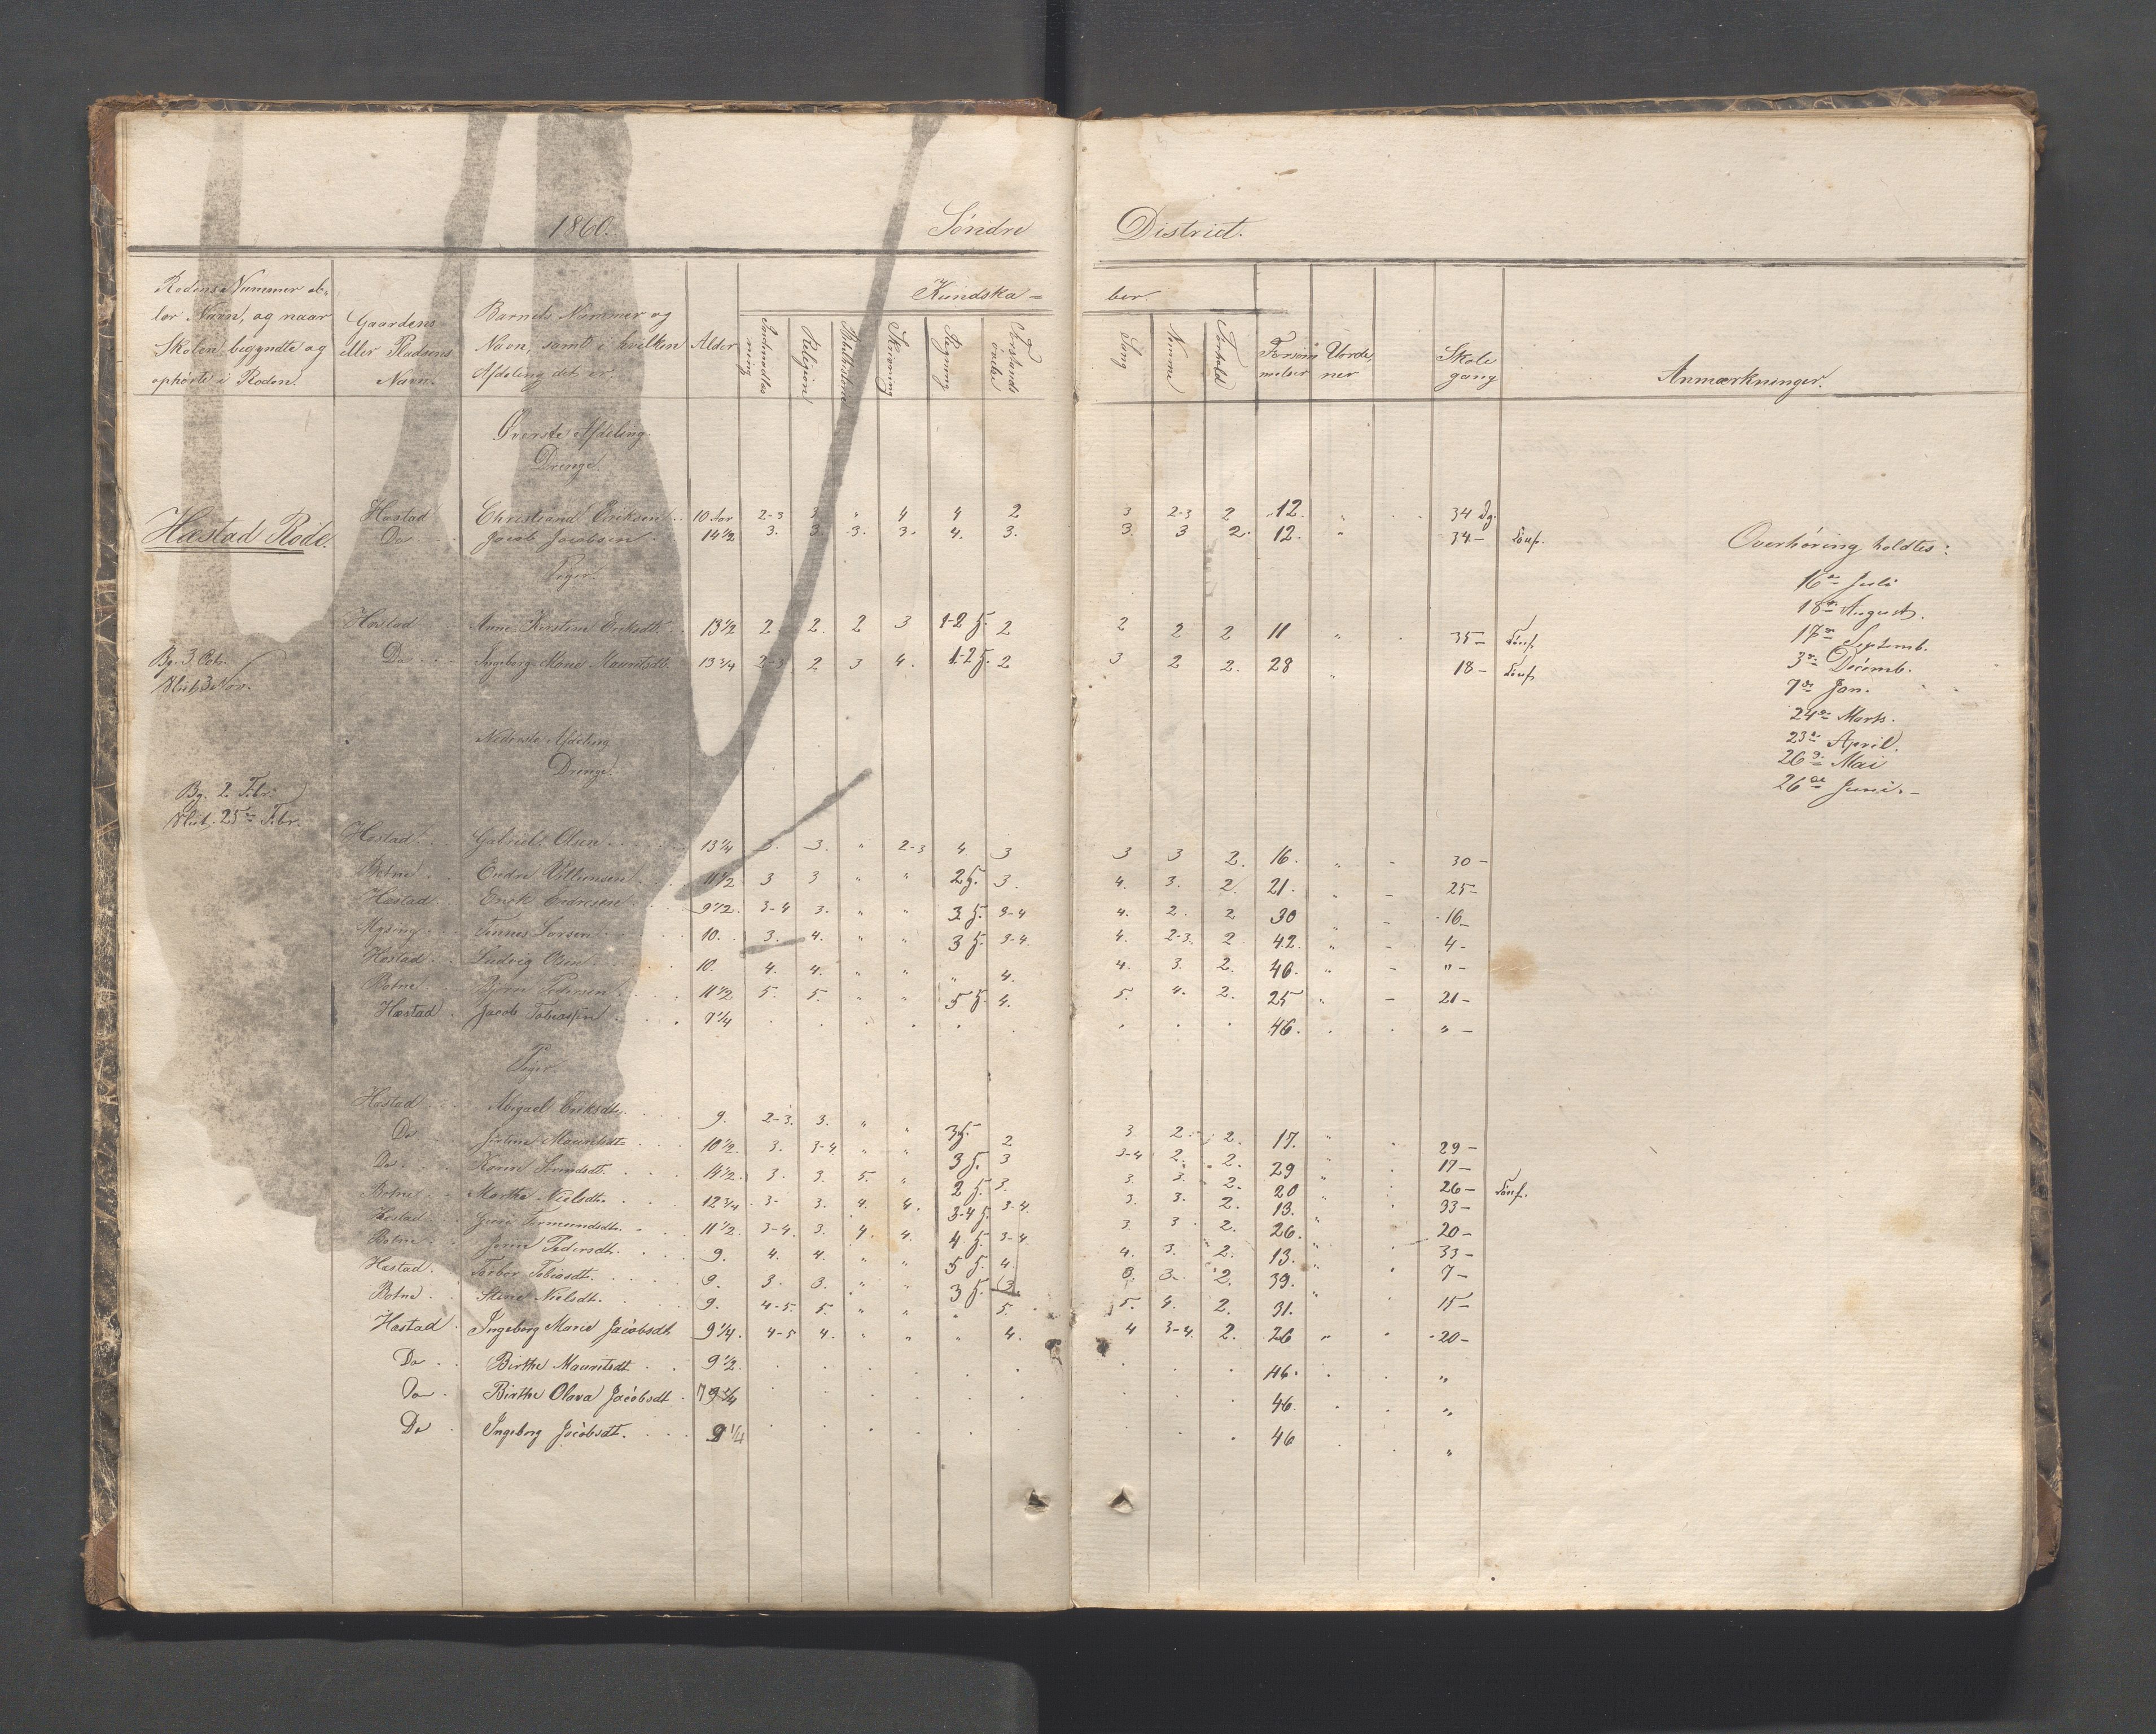 1860. Søndre District.
Rodens Nummer el-
ler Navn, og naar
Skolen begyndte og
ophørte i Roden.
Gaardens
eller Pladsens
Navn.
Barnets Nummer og
Navn, samt i hvilken
Afdeling det er.
Alder
Kundska-
ber.
Religion
Bibelhistorie
Skrivning
Regning
Sang
Nemme
Forhold
Forsøm-
melser
Uorde-
ner
Skole
gang
Anmærkninger.
Øverste Afdeling.
Drenge.
Hæstad Rode.
Hæstad Christiand Eriksen 10 Aar 2-3 3 " 4 4 2 3 2-3 2 12. " 34 Dg.
Do Jacob Jacobsen 14 1/2 3. 3. 3. 3. 4. 3. 3. 3 2. 12. " 34-
Overhøring holdtes:
Piger.
16de Juli
18de August.
Hæstad Anne Kirstine Eriksdt. 13 1/2 2 2. 2 3 1-2 2 2 2 2 11 " 35-
17de Septemb.
Bg. 3 Octr.
Do Ingeborg Marie Mauritsdt. 13 3/4 2-3 2 3 4. 1-2 2 3 2 2. 28 " 18-
3de Decemb.
Slut. 3 Nov.
7de Jan.
24de Marts.
Nederste Afdeling
23de April.
Drenge.
26de Mai
Bg. 2. Febr.
26de Juni.-
Slut. 25de Febr.
Hæstad Gabriel Olsen 13 1/4 3. 3. " 2-3 4 3 3 3 2. 16. " - 30-
Botne Endre Villumsen 11 1/2 3 3 " " 2 3. 4. 3. 2. 21. " - 25-
Hæstad Erik Endresen 9 1/2. 3-4 3. " " 3 3-4 4. 2. 2 30 " - 16-
Mysing Tønnes Larsen 10. 3. 4. " " 3 3-4. 4. 2-3. 2 42. " - 4-
Hæstad Ludvig Olsen 10. 4. 4. " " " 4. 4. 3. 2. 46. " - "-
Botne Bjørn Pedersen 11 1/2 5. 5. " " 5 4. 5. 4. 2. 25 " - 21-
Hæstad Jacob Tobiassen 9 1/4 46. "-
Piger.
Hæstad Abigael Eriksdt. 9. 2-3. 3. " " 3 2 3. 2. 2. 17. " 29-
Do Mauritsdt. 10 1/2. 3. 3-4. " " 3 3 3-4 2. 2. 29 " 17-
Do Karen 14 1/2. 3. 3. 5. " 2 3. 3. 3. 2. 20 " 26-
Botne Marthe Nielsdt. 12 3/4. 3. 3. 4. 4. 3-4 3-4. 3. 3. 2. 13. 33-
Hæstad Tormundsdt. 11 1/2. 3-4. 3. 4. 4. 4 3-4 3. 3 2. 26. " 20-
Botne Pedersdt. 9. 4. 4. " " 5 4 4. 3. 2. 13. " 33-
Hæstad Tobiasdt. 9. 3. 3. " " 3 3. 3. 3. 2. 39. 7-
Botne Stine Nielsdt. 9. 4-5. 5. " " " 5. 5. 4. 2. 31. " 15-
Hæstad Ingeborg Marie Jacobsdt 9 1/4. 4-5 4. " " " 4. 4 3-4. 2. 26 " 20-
Do Birthe Mauritsdt 9 1/2. 46. "
Do Birthe Olava Jacobsdt 46. "
Do Ingeborg Jacobsdt. 9 1/4 46 "